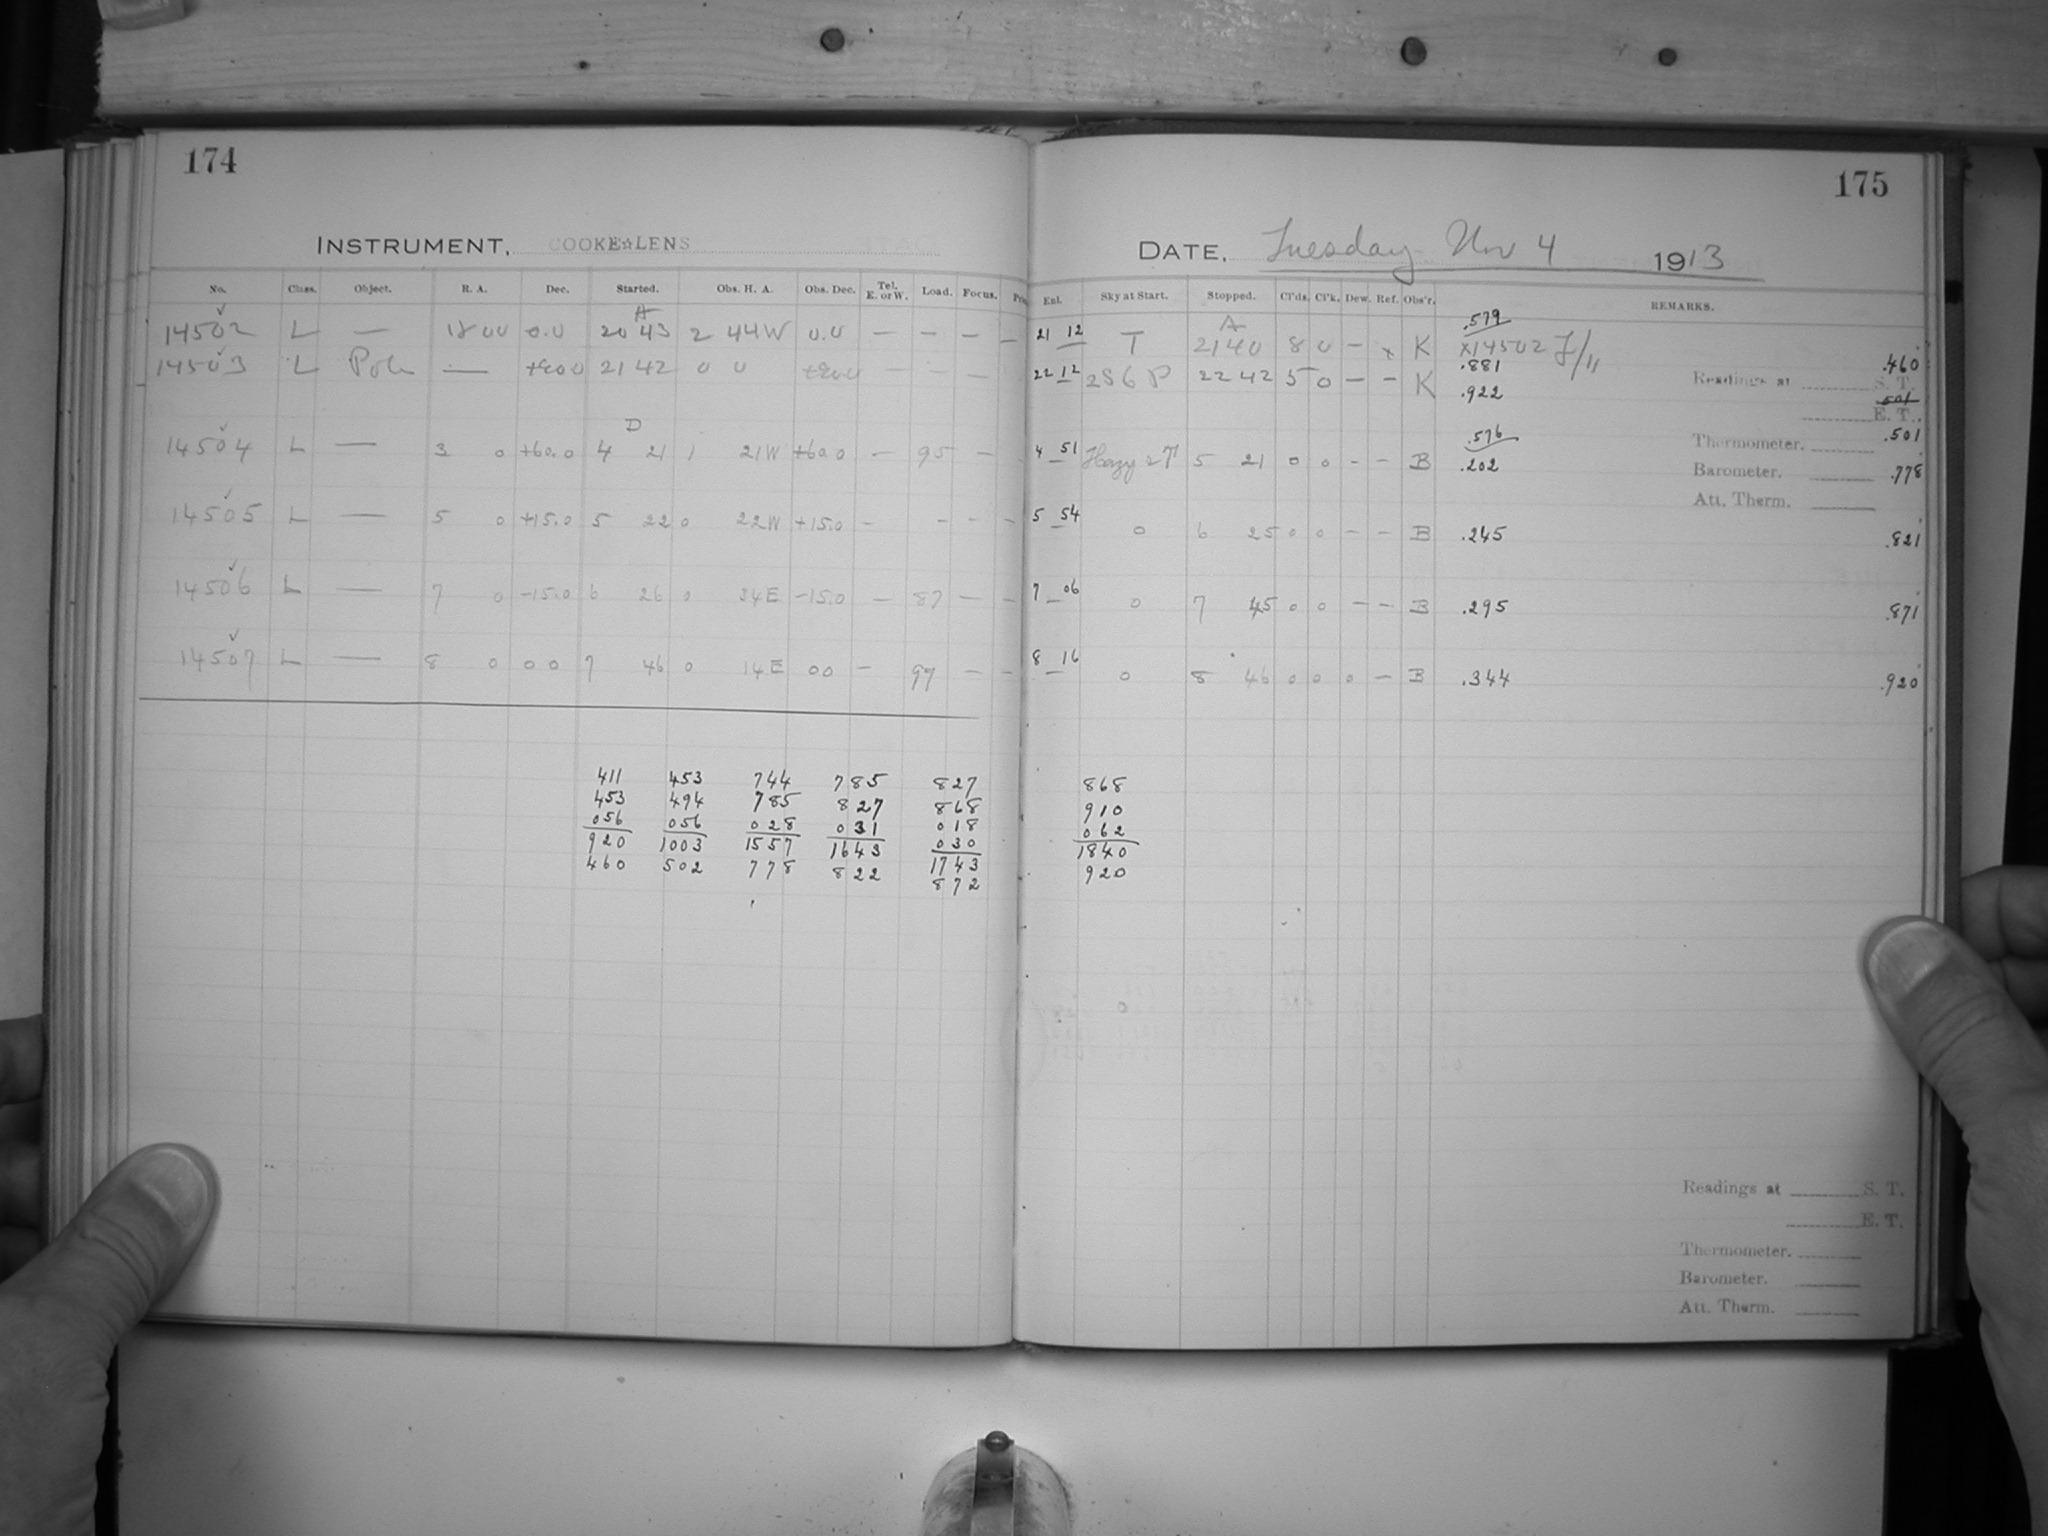 174
INSTRUMENT, COOKE☆LENS
No. Class. Object. R. A. Dec. Started. Obs. H. A. Obs. Dec. Tel. E. or W. Load. Focus.
14502 L — 18 00 0.0 A 20 43 2 44W 0.0 — — — —
14503 L Pole — +90 0 21 42 0 0 +90 0 — — —
14504 L — 3 0 +60.0 D 4 21 1 21W +60.0 — 95 —
14505 L — 5 0 +15.0 5 22 0 22W +15.0 — - - —
14506 L — 7 0 -15.0 6 26 0 34E -15.0 — 87 — —
14507 L — 8 0 0 0 7 46 0 14E 00 — 97 — —
411 453 744 785 827
453 494 785 827 868
056 056 028 031 018
920 1003 1557 1643 030
460 502 778 822 1743
872
175
DATE, Tuesday Nov 4 1913
Ext. Sky at Start. Stopped. Cl'ds. Cl'k. Dew. Ref. Obs'r. REMARKS.
.579
21 12 T A 21 40 8 0 — x K X14502 J/11
.881 .460
22 12 2S6 P 22 42 5 0 — — K .922
Readings at S. T.
.501
E. T.
.576
Thermometer. .501
4 51 Hazy 2T 5 21 0 0 - - B .202
Barometer. .778
Att. Therm.
5 54 0 6 25 0 0 — — B .245 .821
7 06 0 7 45 0 0 — — B .295 .871
8 16 0 8 46 0 0 0 — B .344 .920
868
910
062
1840
920
Readings at S. T.
E. T.
Thermometer.
Barometer.
Att. Therm.